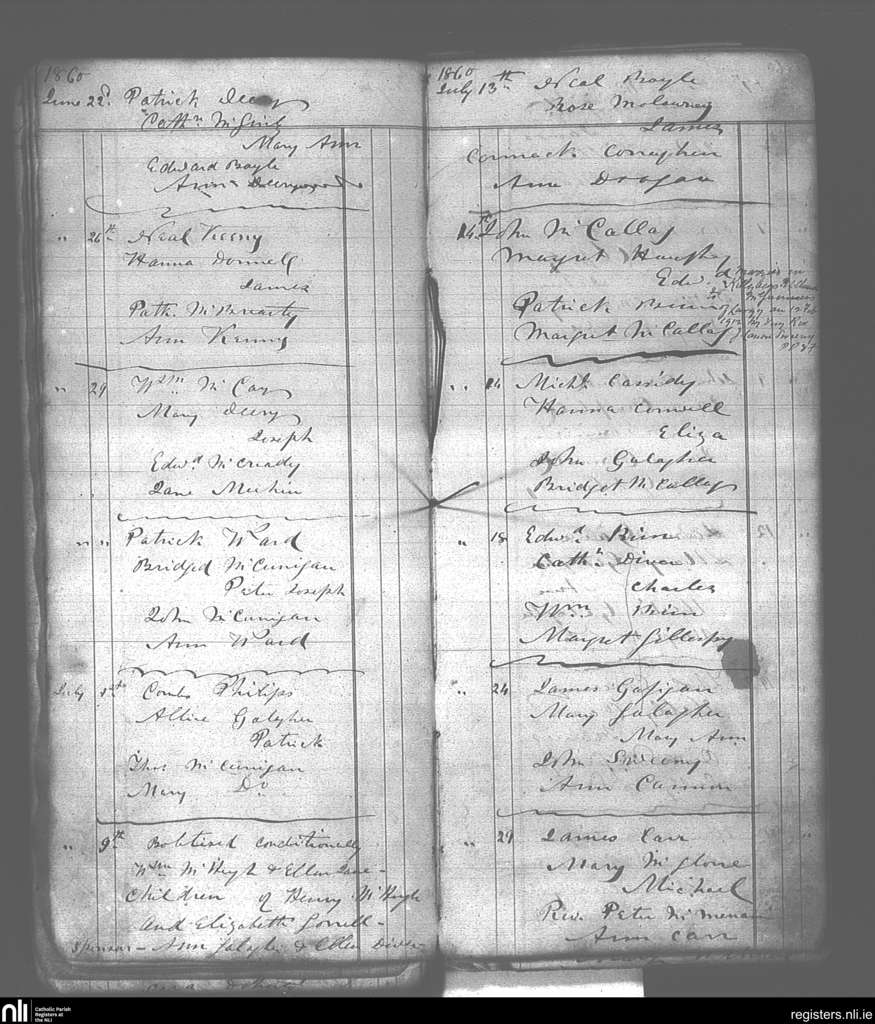 1860
June 22d. Patrick Deery
Cathn McGinly
Mary Ann
Edward Boyle
Ann Deery
" 26th Neal Keeny
Hanna Donnell
James
Patk. McBrearty
Ann Keeny
" 29 Wm. McCay
Mary Deery
Joseph
Edwd. McCready
Jane Meehin
" " Patrick Ward
Bridged McCunigan
Peter Joseph
John McCunigan
Ann Ward
July 1st Philips
Galagher
Patrick
Thos McCunigan
Mary Do
" 9th Babtised conditionally
Wm McHugh & Ellen Jane -
Children of Henry McHugh
And Elizabeth -
Sponsor - Ann & Ellen
1860
July 13th Neal Boyle
Rose
James
Cormack
Ann Drogan
14th John McCallag
Margret
Edwd
Patrick
Margret McCallag
married in
Killybegs
" 14 Michl. Cassidy
Hanna Conwell
Eliza
John Galagher
Bridget McCallag
" 18 Edwd.
Cathn Diven
Charles
Wm
Margret Gillespy
" 24 James
Mary Galagher
Mary Ann
John Sweeny
Ann Cannon
" 29 James Carr
Mary McGlone
Michael
Revd. Peter McMenamin
Ann Carr
nli
Catholic Parish
Registers at
the NLI
registers.nli.ie